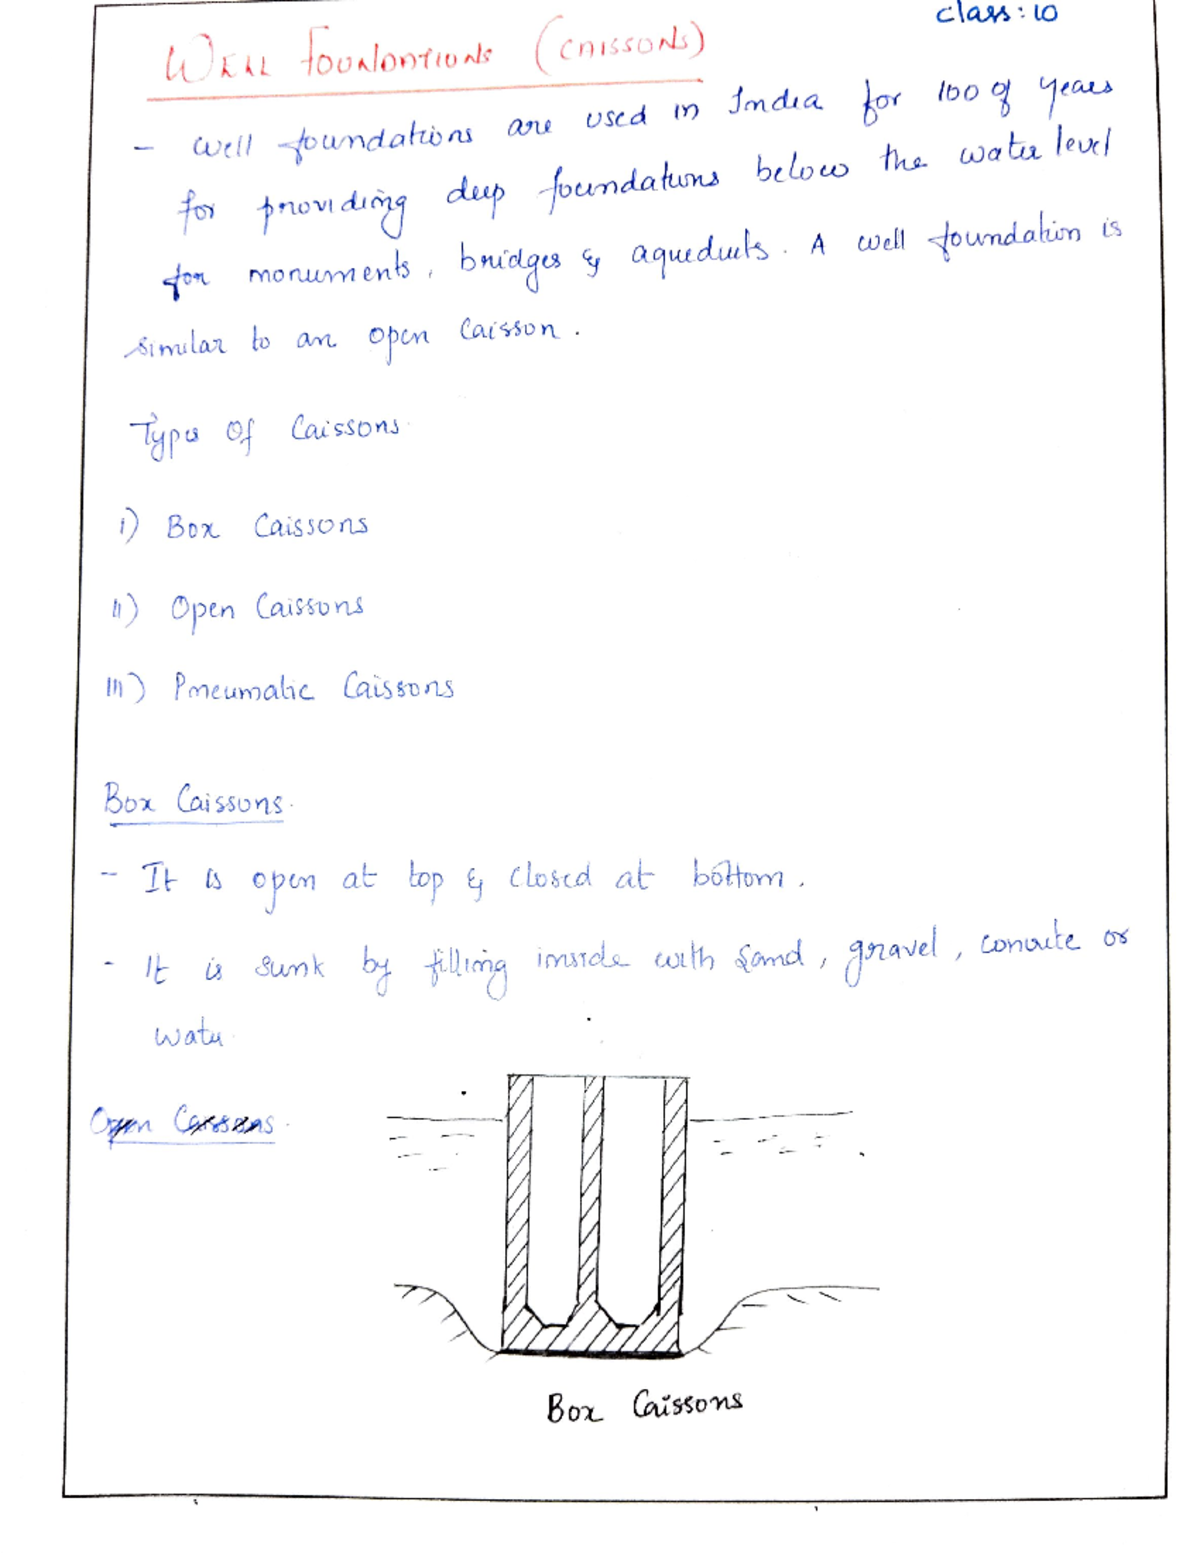 class: 10
WELL FOUNDATIONS (CAISSONS)
- Well foundations are used in India for 100 of years
for providing deep foundations below the water level
for monuments, bridges & aqueducts. A well foundation is
similar to an open Caisson.
Types Of Caissons.
i) Box Caissons
ii) Open Caissons
iii) Pneumatic Caissons
Box Caissons.
- It is open at top & closed at bottom.
- It is sunk by filling inside with sand, gravel, concrete or
water.
Open Caissons.
Box Caissons